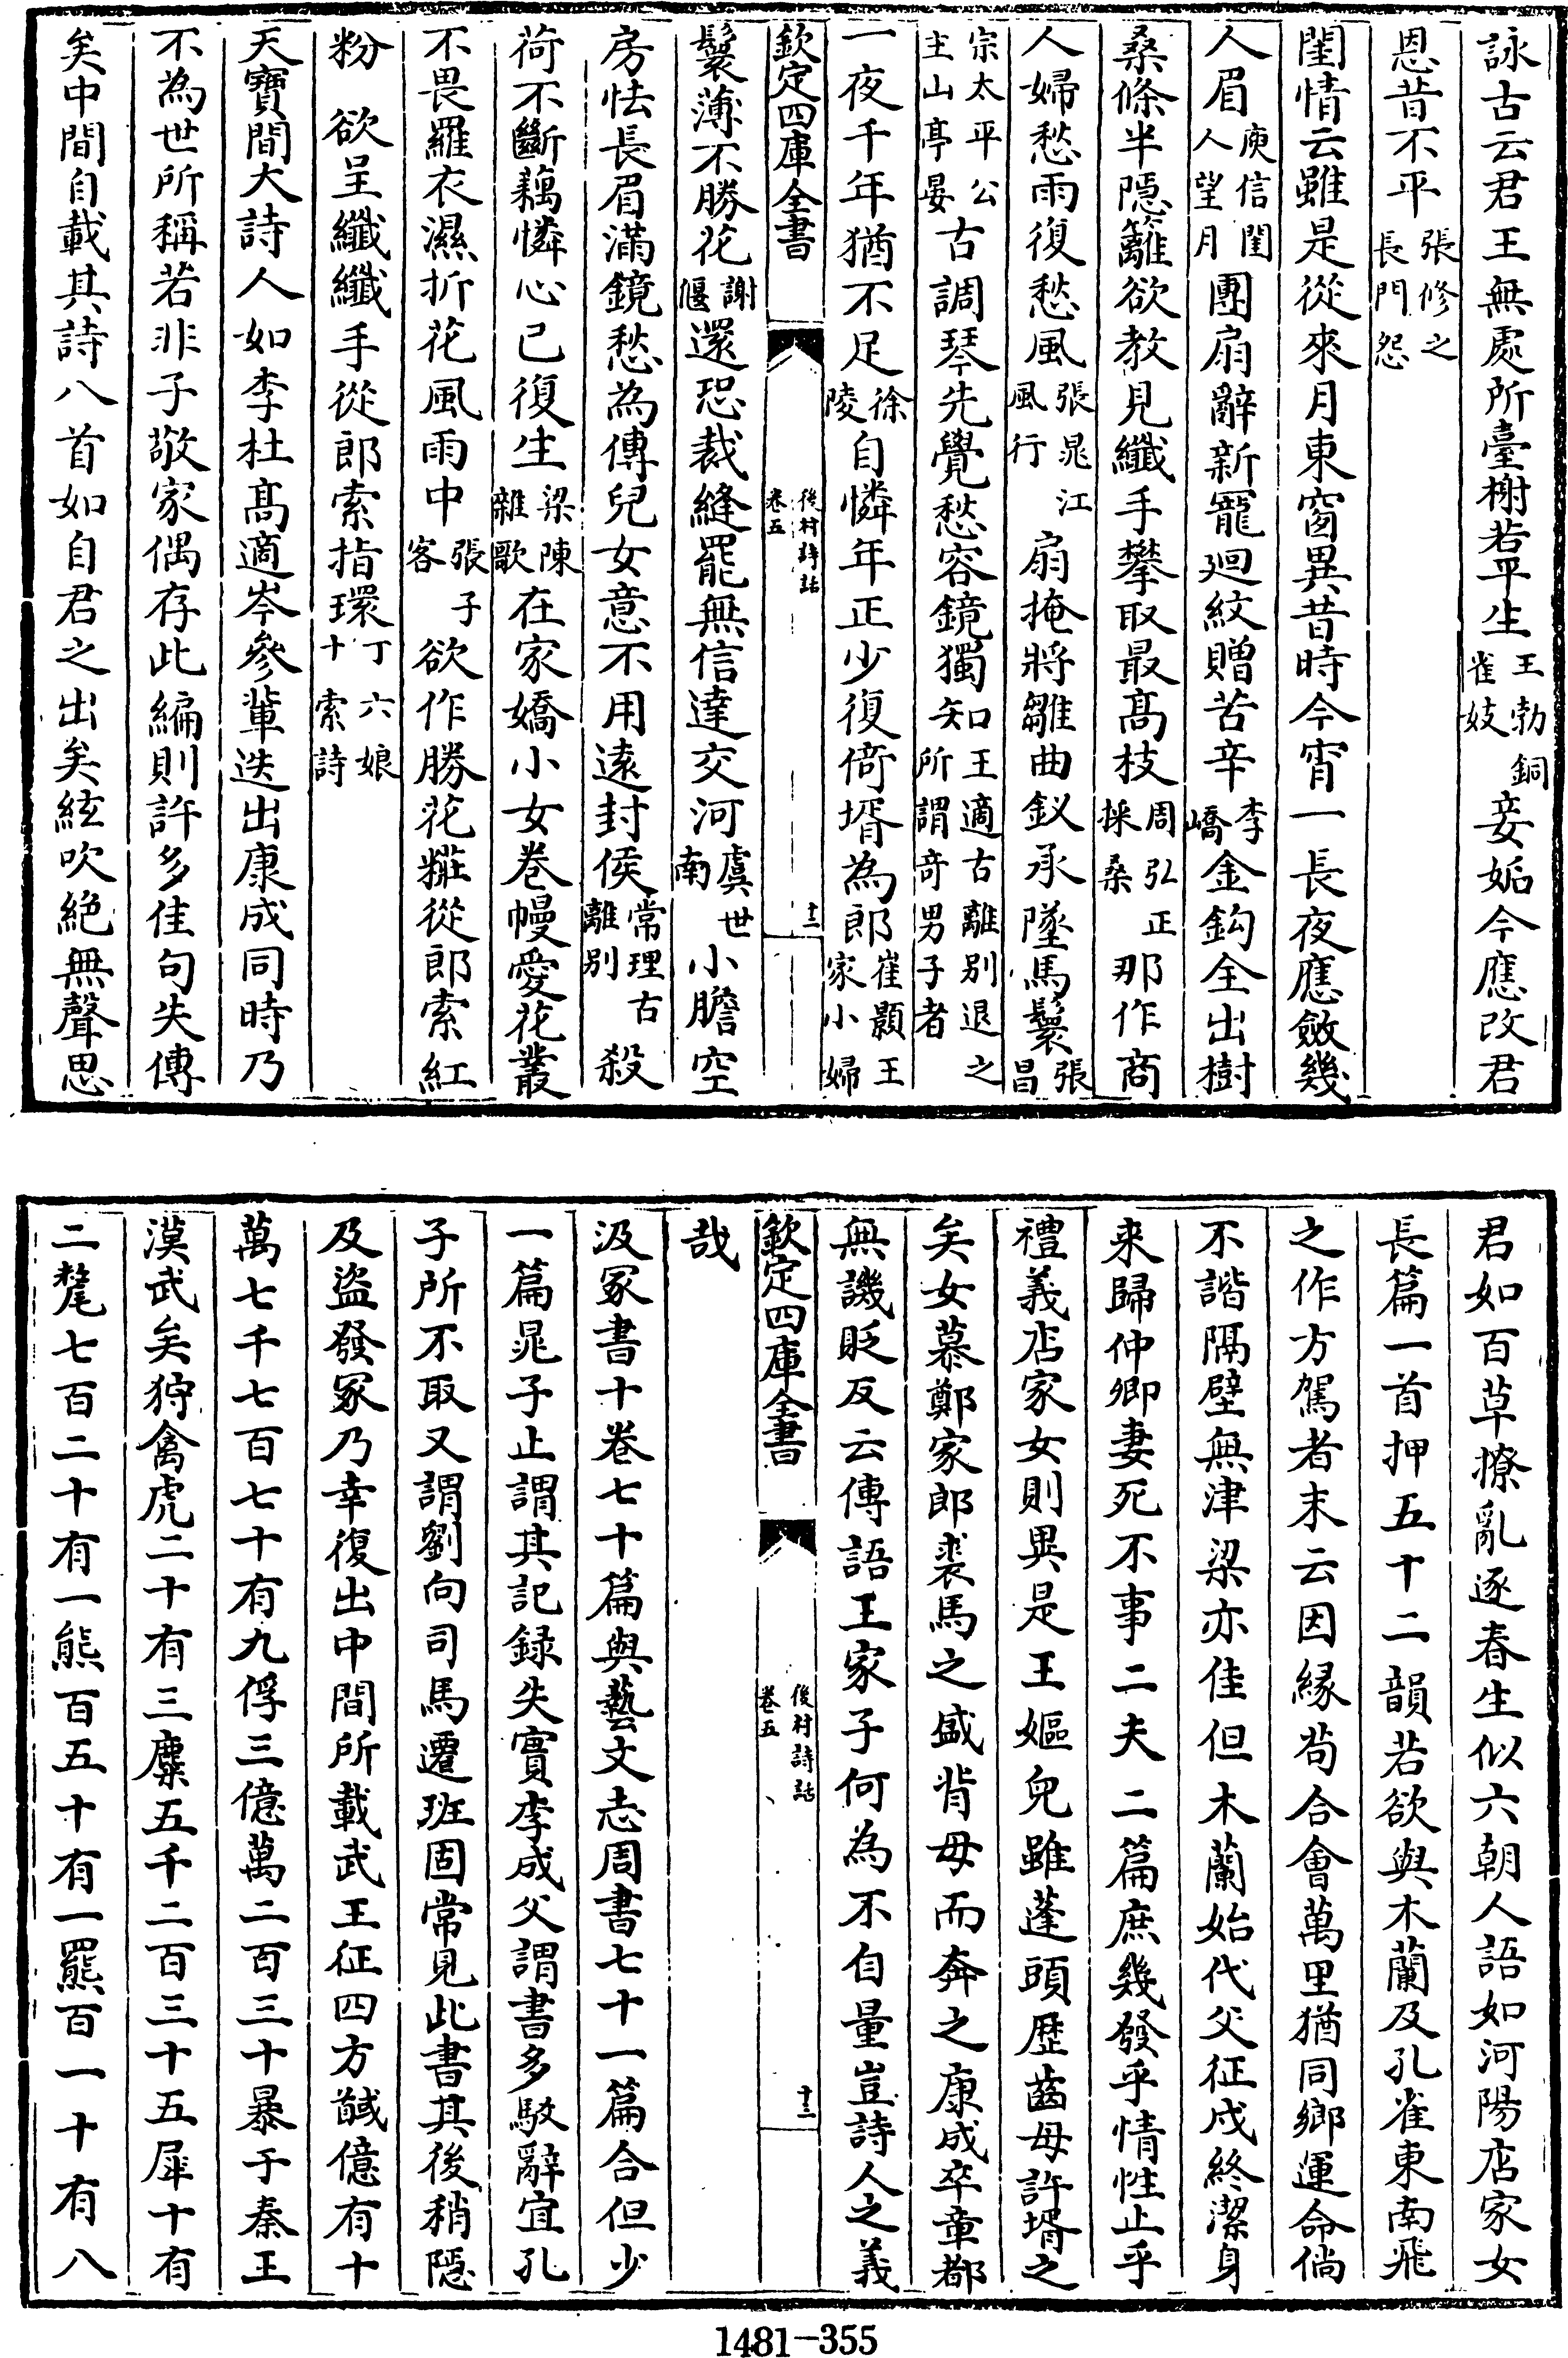 詠古云君王無處所臺榭若平生王勃銅雀妓妾妬今應改君
恩昔不平張修之長門怨
閨情云雖是從來月東窗異昔時今宵一長夜應斂幾
人眉庾信閨人望月團扇辭新寵廻紋贈苦辛李嶠金鈎全出樹
桑條半隠籬欲教見纖手攀取最髙枝周弘正採桑那作商
人婦愁雨復愁風張晁江風行扇掩將雛曲釵承墜馬鬟張昌
宗太平公主山亭晏古調琴先覺愁容鏡獨知王適古離別退之所謂竒男子者
一夜千年猶不足徐陵自憐年正少復倚壻為郎崔顥王家小婦
欽定四庫全書
後村詩話
卷五
十二
鬟薄不勝花謝偃還恐裁縫罷無信達交河虞世南小膽空
房怯長眉滿鏡愁為傳兒女意不用遠封侯常理古離别殺
荷不斷藕憐心已復生梁陳雜歌在家嬌小女卷幔愛花叢
不畏羅衣濕折花風雨中張子客欲作勝花糚從郎索紅
粉　欲呈纖纖手從郎索指環丁六娘十索詩
天寶間大詩人如李杜髙適岑參輩迭出康成同時乃
不為世所稱若非子敬家偶存此編則許多佳句失傳
矣中間自載其詩八首如自君之出矣絃吹絶無聲思
君如百草撩亂逐春生似六朝人語如河陽店家女
長篇一首押五十二韻若欲與木蘭及孔雀東南飛
之作方駕者末云因縁茍合會萬里猶同鄉運命倘
不諧隔壁無津梁亦佳但木蘭始代父征戍終潔身
来歸仲卿妻死不事二夫二篇庶幾發乎情性止乎
禮義店家女則異是王嫗兒雖蓬頭歴齒母許壻之
矣女慕鄭家郎裘馬之盛背母而奔之康成卒章都
無譏貶反云傳語王家子何為不自量豈詩人之義
欽定四庫全書
後村詩話
卷五
十三
哉
汲冢書十卷七十篇與藝文志周書七十一篇合但少
一篇晁子止謂其記録失實李成父謂書多駁辭宜孔
子所不取又謂劉向司馬遷班固常見此書其後稍隠
及盜發冢乃幸復出中間所載武王征四方馘億有十
萬七千七百七十有九俘三億萬二百三十暴于秦王
漢武矣狩禽虎二十有三麋五千二百三十五犀十有
二氂七百二十有一熊百五十有一羆百一十有八
1481-355